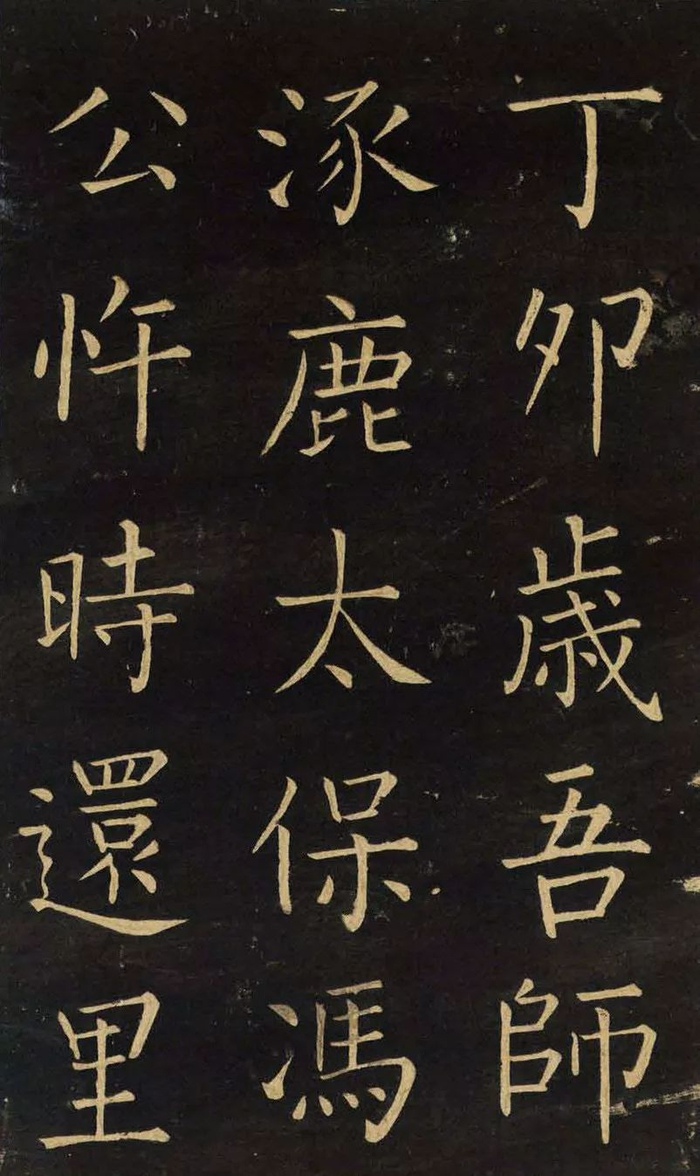 丁卯歳吾師
涿鹿太保馮
公忤時還里